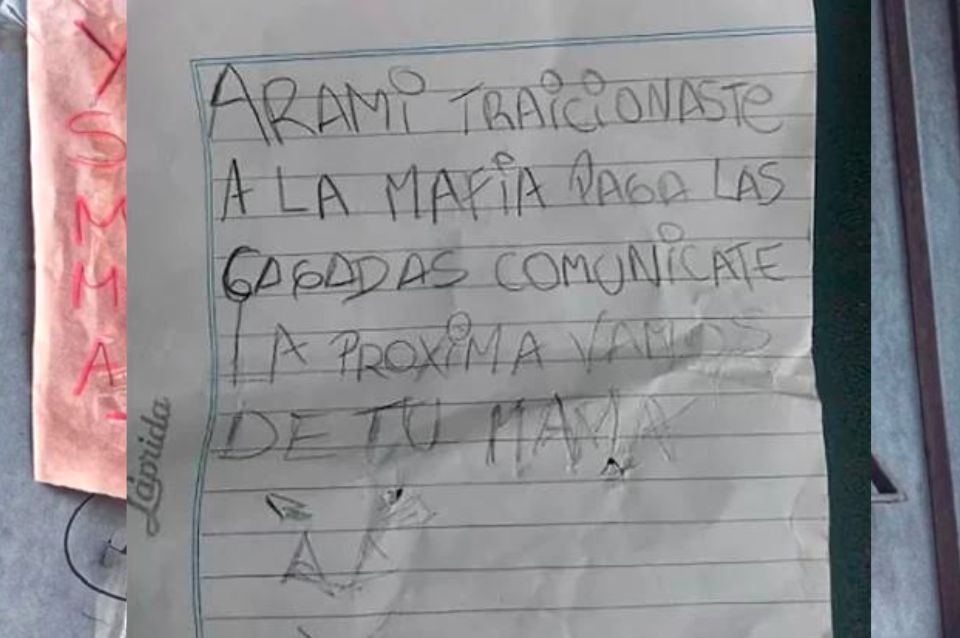 YSMMA
ARAMi TRAiCiONASTe
A LA MAFiA PAGA LAS
CAGADAS COMUNiCATE
LA PROXiMA VAMOS
DE TU MAMA
Laprida